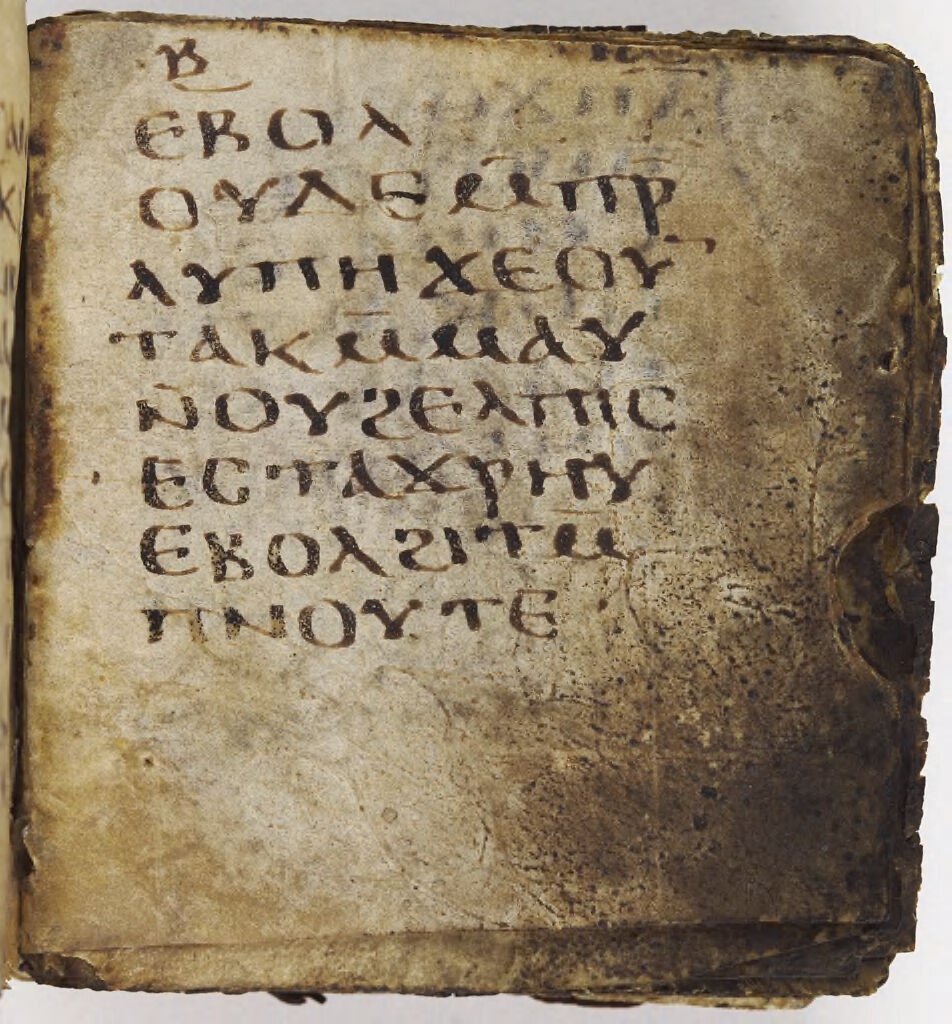 ⲃ
ⲉⲃⲟⲗ
ⲟⲩⲇⲉⲙ̄ⲡⲣ̄
ⲗⲩⲡⲏϫⲉⲟⲩⲛ̄
ⲧⲁⲕⲙ̄ⲙⲁⲩ
ⲛ̄ⲟⲩϩⲉⲗⲡⲓⲥ
ⲉⲥⲧⲁϫⲣⲏⲩ
ⲉⲃⲟⲗϩⲓⲧⲙ̄
ⲡⲛⲟⲩⲧⲉ